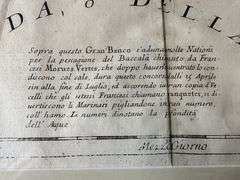 DA, O DELLA
Sopra questo Gran Banco s'aduna molte Nationi
per la pescagione del Baccalà chiamato da Fran-
cesi Moruee Vertes, che doppo haver sventrato lo con-
discono col sale, dura questo concorso dalli 15 Aprile
fin alla fine di Luglio, ed accorendo un gran copia d'V-
celli che gli stessi Francesi chiamano vanguetes, si di-
vertiscono li Marinari pigliandone in gran numero,
coll'hamo. Le numeri dinotano la profondità
dell'Aque
Mezzo Giorno